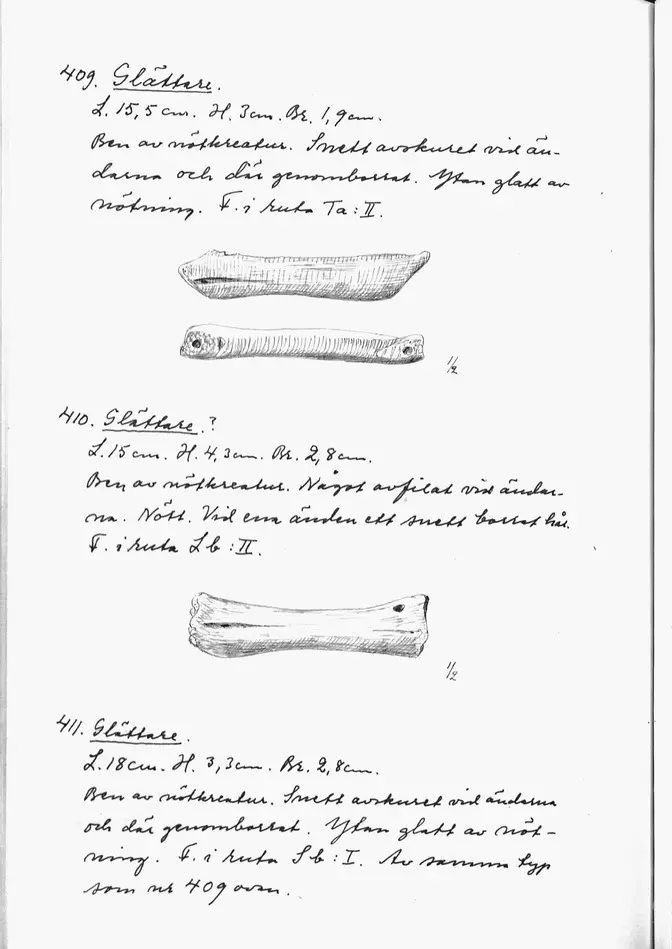 409. Glättare.
L. 15,5 cm. H. 3 cm. Br. 1,9 cm.
Ben av nötkreatur. Snett avskuret vid än-
darna och där genomborrat. Ytan glatt av
nötning. F. i ruta Ta : II.
1/2
410. Glättare ?
L. 15 cm. H. 4,3 cm. Br. 2,8 cm.
Ben av nötkreatur. Något avfilat vid ändar-
na. Nött. Vid ena änden ett snett borrat hål.
F. i ruta Lb : II.
1/2
411. Glättare.
L. 18 cm. H. 3,3 cm. Br. 2,8 cm.
Ben av nötkreatur. Snett avskuret vid ändarna
och där genomborrat. Ytan glatt av nöt-
ning. F. i ruta Sb : I. Av samma typ
som nr 409 ovan.